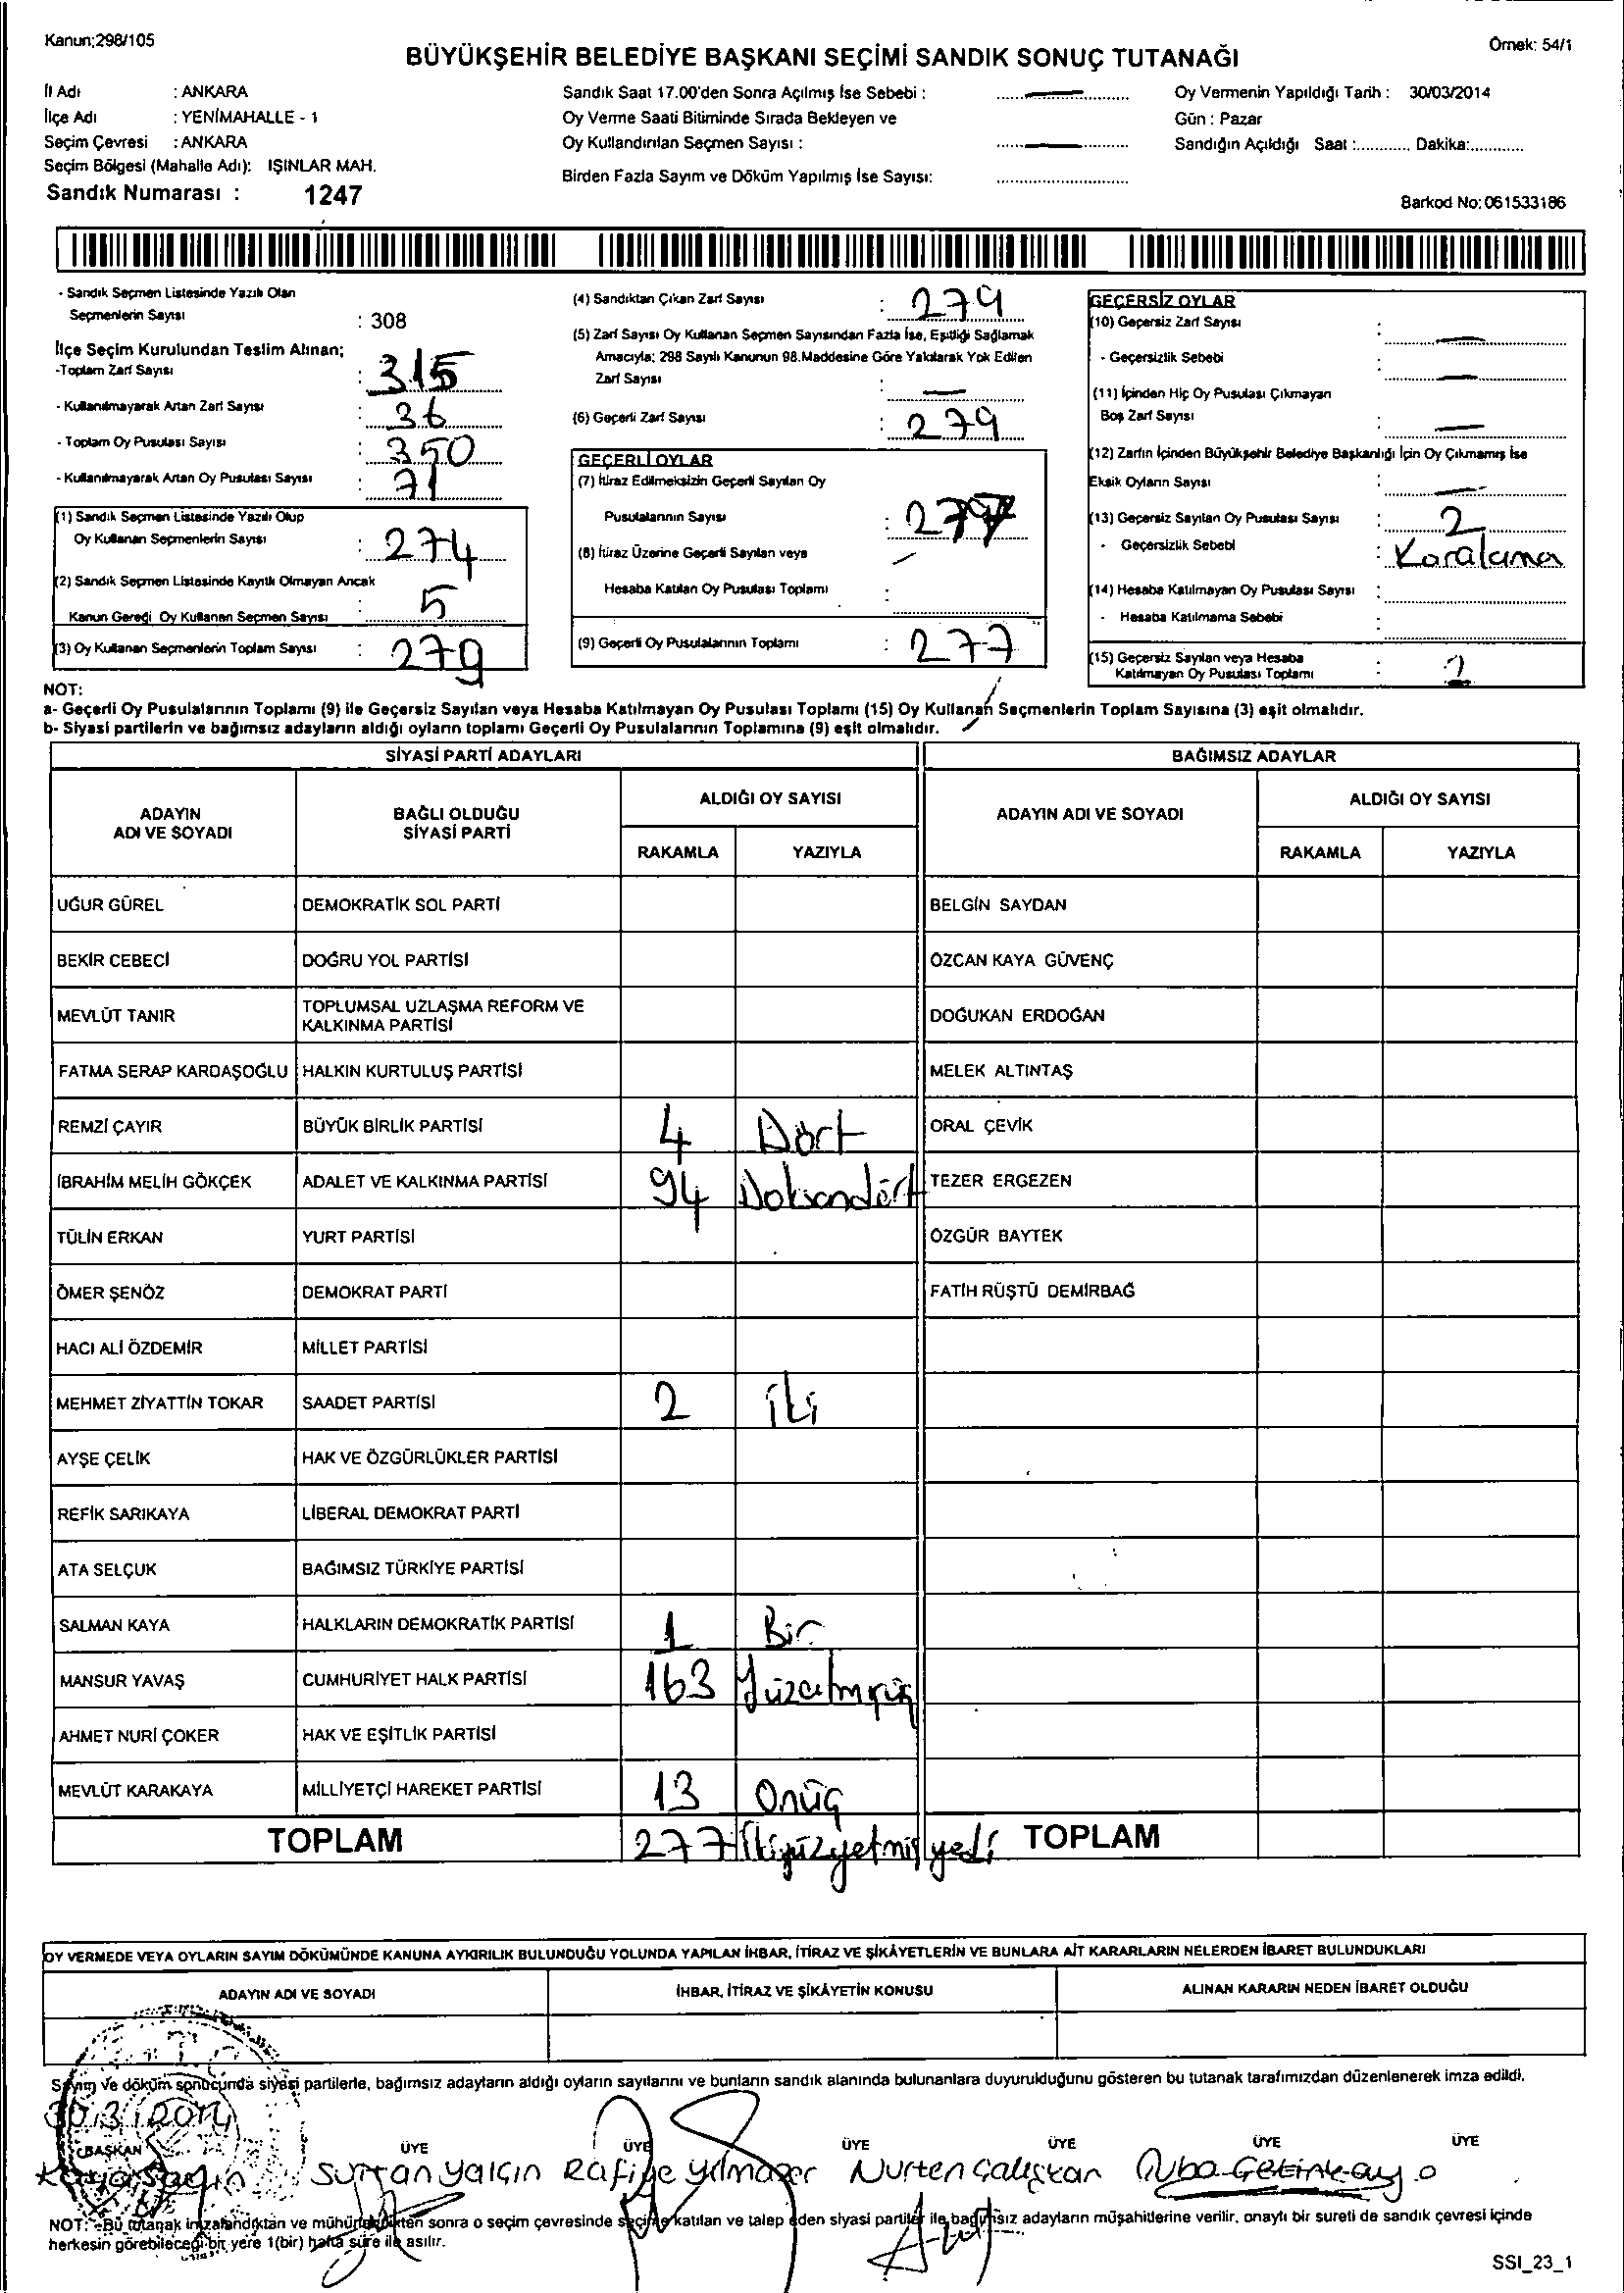 Kanun;298/105
Örnek: 54/1
BÜYÜKŞEHİR BELEDİYE BAŞKANI SEÇİMİ SANDIK SONUÇ TUTANAĞI
İl Adı : ANKARA
İlçe Adı : YENİMAHALLE - 1
Seçim Çevresi : ANKARA
Seçim Bölgesi (Mahalle Adı): IŞINLAR MAH.
Sandık Numarası : 1247
Sandık Saat 17.00'den Sonra Açılmış İse Sebebi :
Oy Verme Saati Bitiminde Sırada Bekleyen ve
Oy Kullandırılan Seçmen Sayısı :
Birden Fazla Sayım ve Döküm Yapılmış İse Sayısı:
Oy Vermenin Yapıldığı Tarih : 30/03/2014
Gün : Pazar
Sandığın Açıldığı Saat :............ Dakika:............
Barkod No: 061533186
- Sandık Seçmen Listesinde Yazılı Olan
Seçmenlerin Sayısı : 308
İlçe Seçim Kurulundan Teslim Alınan;
-Toplam Zarf Sayısı : 315
- Kullanılmayarak Artan Zarf Sayısı : 36
- Toplam Oy Pusulası Sayısı : 350
- Kullanılmayarak Artan Oy Pusulası Sayısı : 71
(1) Sandık Seçmen Listesinde Yazılı Olup
Oy Kullanan Seçmenlerin Sayısı : 274
(2) Sandık Seçmen Listesinde Kayıtlı Olmayan Ancak
Kanun Gereği Oy Kullanan Seçmen Sayısı : 5
(3) Oy Kullanan Seçmenlerin Toplam Sayısı : 279
(4) Sandıktan Çıkan Zarf Sayısı : 279
(5) Zarf Sayısı Oy Kullanan Seçmen Sayısından Fazla İse, Eşitliği Sağlamak
Amacıyla; 298 Sayılı Kanunun 98.Maddesine Göre Yakılarak Yok Edilen
Zarf Sayısı : —
(6) Geçerli Zarf Sayısı : 279
GEÇERLİ OYLAR
(7) İtiraz Edilmeksizin Geçerli Sayılan Oy
Pusulalarının Sayısı : 277
(8) İtiraz Üzerine Geçerli Sayılan veya
Hesaba Katılan Oy Pusulası Toplamı :
(9) Geçerli Oy Pusulalarının Toplamı : 277
GEÇERSİZ OYLAR
(10) Geçersiz Zarf Sayısı : —
- Geçersizlik Sebebi : —
(11) İçinden Hiç Oy Pusulası Çıkmayan
Boş Zarf Sayısı : —
(12) Zarfın İçinden Büyükşehir Belediye Başkanlığı İçin Oy Çıkmamış İse
Eksik Oyların Sayısı : —
(13) Geçersiz Sayılan Oy Pusulası Sayısı : 2
- Geçersizlik Sebebi : Karalama
(14) Hesaba Katılmayan Oy Pusulası Sayısı :
- Hesaba Katılmama Sebebi :
(15) Geçersiz Sayılan veya Hesaba
Katılmayan Oy Pusulası Toplamı : 2
NOT:
a- Geçerli Oy Pusulalarının Toplamı (9) ile Geçersiz Sayılan veya Hesaba Katılmayan Oy Pusulası Toplamı (15) Oy Kullanan Seçmenlerin Toplam Sayısına (3) eşit olmalıdır.
b- Siyasi partilerin ve bağımsız adayların aldığı oyların toplamı Geçerli Oy Pusulalarının Toplamına (9) eşit olmalıdır.
SİYASİ PARTİ ADAYLARI BAĞIMSIZ ADAYLAR
ADAYIN ADI VE SOYADI BAĞLI OLDUĞU SİYASİ PARTİ ALDIĞI OY SAYISI ADAYIN ADI VE SOYADI ALDIĞI OY SAYISI
RAKAMLA YAZIYLA RAKAMLA YAZIYLA
UĞUR GÜREL DEMOKRATİK SOL PARTİ BELGİN SAYDAN
BEKİR CEBECİ DOĞRU YOL PARTİSİ ÖZCAN KAYA GÜVENÇ
MEVLÜT TANIR TOPLUMSAL UZLAŞMA REFORM VE KALKINMA PARTİSİ DOĞUKAN ERDOĞAN
FATMA SERAP KARDAŞOĞLU HALKIN KURTULUŞ PARTİSİ MELEK ALTINTAŞ
REMZİ ÇAYIR BÜYÜK BİRLİK PARTİSİ 4 Dört ORAL ÇEVİK
İBRAHİM MELİH GÖKÇEK ADALET VE KALKINMA PARTİSİ 94 Doksandört TEZER ERGEZEN
TÜLİN ERKAN YURT PARTİSİ ÖZGÜR BAYTEK
ÖMER ŞENÖZ DEMOKRAT PARTİ FATİH RÜŞTÜ DEMİRBAĞ
HACI ALİ ÖZDEMİR MİLLET PARTİSİ
MEHMET ZİYATTİN TOKAR SAADET PARTİSİ 2 iki
AYŞE ÇELİK HAK VE ÖZGÜRLÜKLER PARTİSİ
REFİK SARIKAYA LİBERAL DEMOKRAT PARTİ
ATA SELÇUK BAĞIMSIZ TÜRKİYE PARTİSİ
SALMAN KAYA HALKLARIN DEMOKRATİK PARTİSİ 1 Bir
MANSUR YAVAŞ CUMHURİYET HALK PARTİSİ 163 Yüzatmışüç
AHMET NURİ ÇOKER HAK VE EŞİTLİK PARTİSİ
MEVLÜT KARAKAYA MİLLİYETÇİ HAREKET PARTİSİ 13 Onüç
TOPLAM 277 İkiyüzyetmişyedi TOPLAM
OY VERMEDE VEYA OYLARIN SAYIM DÖKÜMÜNDE KANUNA AYKIRILIK BULUNDUĞU YOLUNDA YAPILAN İHBAR, İTİRAZ VE ŞİKÂYETLERİN VE BUNLARA AİT KARARLARIN NELERDEN İBARET BULUNDUKLARI
ADAYIN ADI VE SOYADI İHBAR, İTİRAZ VE ŞİKÂYETİN KONUSU ALINAN KARARIN NEDEN İBARET OLDUĞU
Sayım ve döküm sonucunda siyasi partilerle, bağımsız adayların aldığı oyların sayılarını ve bunların sandık alanında bulunanlara duyurulduğunu gösteren bu tutanak tarafımızdan düzenlenerek imza edildi.
30/3/2014
BAŞKAN ÜYE ÜYE ÜYE ÜYE ÜYE ÜYE
Sultan Yalçın Rafiye Yılmazer Nurten Çalışkan
NOT: -Bu tutanak imzalandıktan ve mühürlendikten sonra o seçim çevresinde seçime katılan ve talep eden siyasi partiler ile bağımsız adayların müşahitlerine verilir, onaylı bir sureti de sandık çevresi içinde
herkesin görebileceği bir yere 1(bir) hafta süre ile asılır.
SSI_23_1